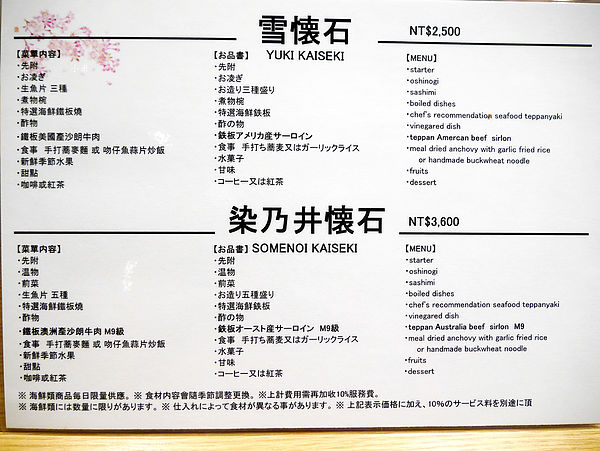 雪懐石
NT$2,500
YUKI KAISEKI
【菜單内容】
・先附
・お凌ぎ
・生魚片 三種
・煮物椀
・特選海鮮鐵板燒
・酢物
・鐵板美國產沙朗牛肉
・食事 手打蕎麥麵 或 吻仔魚蒜片炒飯
・新鮮季節水果
・甜點
・咖啡或紅茶
【お品書】
・先附
・お凌ぎ
・お造り三種盛り
・煮物椀
・特選海鮮鉄板
・酢の物
・鉄板アメリカ産サーロイン
・食事 手打ち蕎麦又はガーリックライス
・水菓子
・甘味
・コーヒー又は紅茶
【MENU】
・starter
・oshinogi
・sashimi
・boiled dishes
・chef's recommendation seafood teppanyaki
・vinegared dish
・teppan Amercan beef sirlon
・meal dried anchovy with garlic fried rice
or handmade buckwheat noodle
・fruits
・dessert
染乃井懐石
NT$3,600
SOMENOI KAISEKI
【菜單内容】
・先附
・温物
・前菜
・生魚片 五種
・特選海鮮鐵板燒
・酢物
・鐵板澳洲產沙朗牛肉 M9級
・食事 手打蕎麥麵 或 吻仔魚蒜片炒飯
・新鮮季節水果
・甜點
・咖啡或紅茶
【お品書】
・先附
・温物
・前菜
・お造り五種盛り
・特選海鮮鉄板
・酢の物
・鉄板オースト産サーロイン M9級
・食事 手打ち蕎麦又はガーリックライス
・水菓子
・甘味
・コーヒー又は紅茶
【MENU】
・starter
・oshinogi
・sashimi
・boiled dishes
・chef's recommendation seafood teppanyaki
・vinegared dish
・teppan Australia beef sirlon M9
・meal dried anchovy with garlic fried rice
or handmade buckwheat noodle
・fruits
・dessert
※ 海鮮類商品每日限量供應。※ 食材内容會隨季節調整更換。※上計費用需再加收10%服務費。
※ 海鮮類には数量に限りがあります。※ 仕入れによって食材が異なる事があります。※ 上記表示価格に加え、10%のサービス料を別途に頂